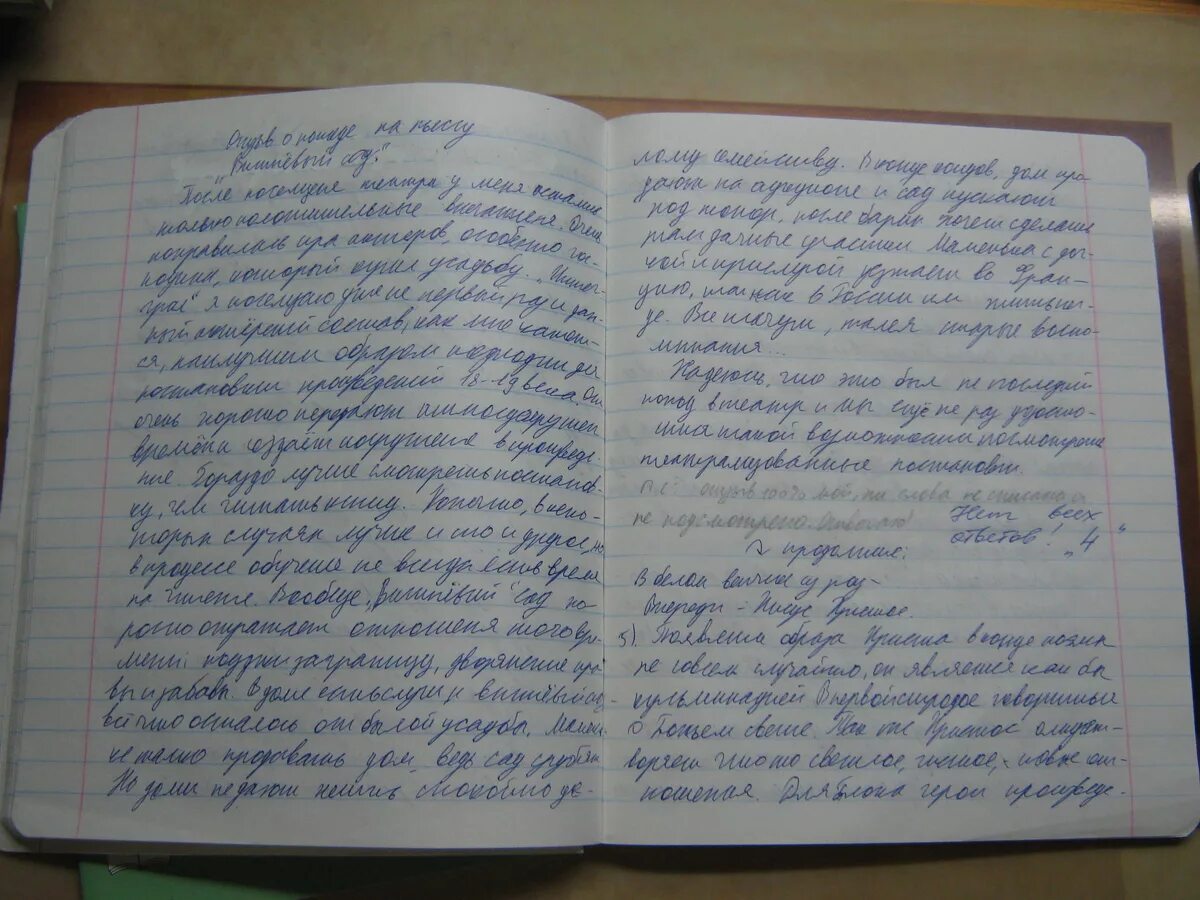 Отзыв о походе на пьессу
"Вишнёвый сад".
После посещения театра у меня остались
только положительные впечатления. Очень
понравилась игра актёров, особенно гос-
подина, который купил усадьбу.
я посещаю уже не первый раз и дан-
ный актёрский состав, как мне кажет-
ся, наилучшим образом подходит для
постановки произведений 18-19 века. Они
очень хорошо передают атмосферу
времени создаёт погружение в произведе-
ние. Гораздо лучше смотреть постанов-
ку, чем читать книгу. Конечно, в неко-
торых случаях лучше и то и другое, но
в процессе обучения не всегда есть время
на чтение. Вообще, "Вишнёвый сад" хо-
рошо отражает отношения того вре-
мени: поездки заграницу, дворянские нра-
вы и забавы. В доме есть слуги и вишнёвый сад,
всё что осталось от былой усадьбы.
не жалко продавать дом, ведь сад срубят.
Но долги не дают жить спокойно це-
лому семейству. В конце концов, дом про-
дают на аукционе и сад пускают
под топор, после барин хочет сделать
там дачные участки. Маменька с доч-
кой и уезжает во Фран-
цию, так как в России им жить не-
где. Все плачут, старые воспо-
минания...
Надеюсь, что это был не последний
поход в театр и мы ещё не раз удосто-
имся такой возможности посмотреть
театрализованные постановки.
P.S. отзыв 100% мой, ни слова не списано и
не подсмотрено. Отвечаю!
Нет всех
ответов! "4"
продолжение:
В белом венчике из роз -
Впереди - Исус Христос.
5). Появление образа Христа в конце поэмы
не совсем случайно, он является как бы
кульминацией. В первой говориться
о Божьем свете. Так же Христос олицет-
воряет что-то светлое, чистое, - новые от-
ношения. Для Блока герои произведе-